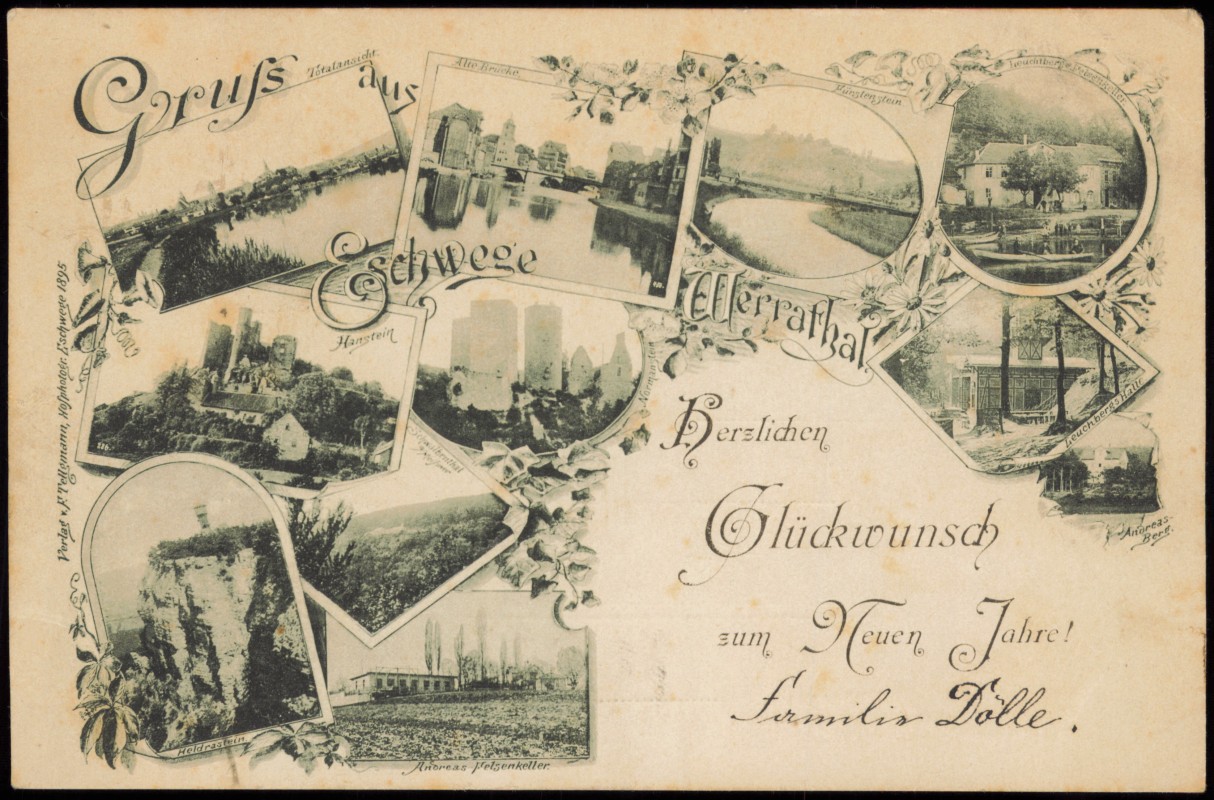 Gruss aus
Totalansicht.
Alte Brücke.
Fürstenstein
Leuchtberg's Felsenkeller.
Eschwege
Werrathal.
Hanstein
Normannstein
Leuchbergs Halle
Andreas-
Berg.
Verlag v. F. Tellgmann, Hofphotogr. Eschwege 1895
Herzlichen
Glückwunsch
zum Neuen Jahre!
Familie Dölle.
Heldrastein
Andreas-Felsenkeller.